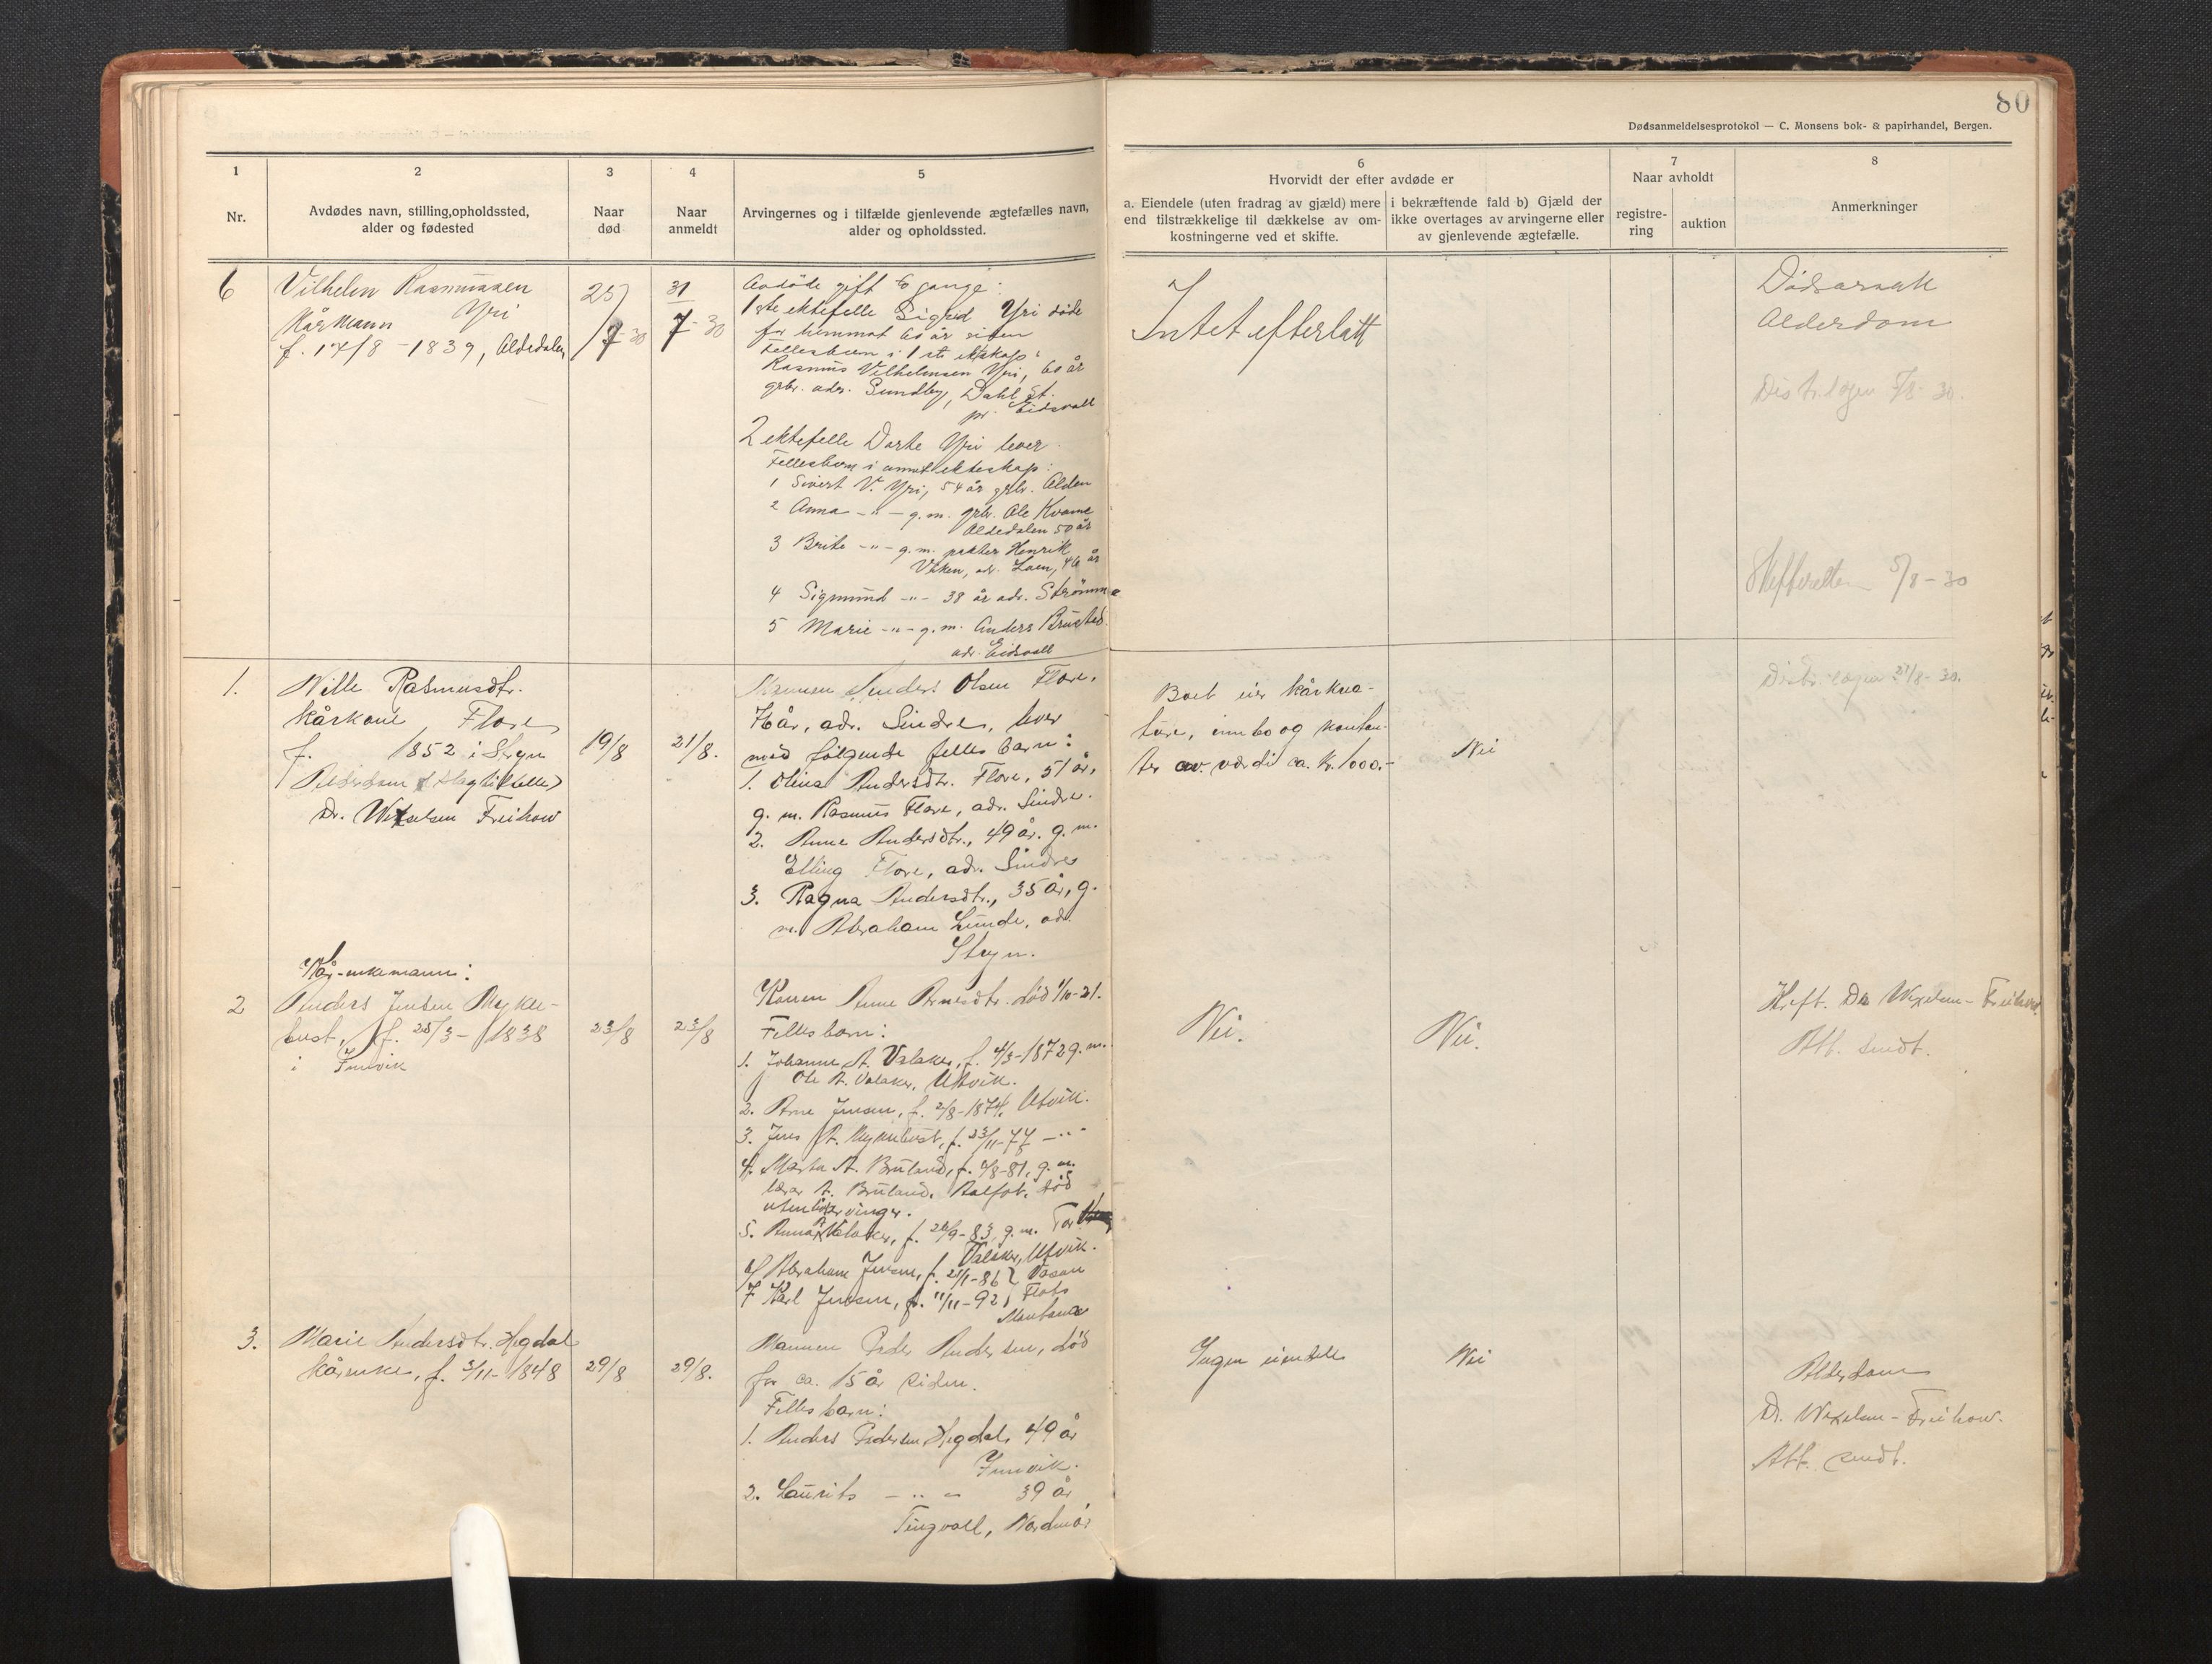 80
Dødsanmeldelsesprotokol — C. Monsens bok- & papirhandel, Bergen.
1
Nr.
2
Avdødes navn, stilling, opholdssted,
alder og fødested
3
Naar
død
4
Naar
anmeldt
5
Arvingernes og i tilfælde gjenlevende ægtefælles navn,
alder og opholdssted.
6
Hvorvidt der efter avdøde er
a. Eiendele (uten fradrag av gjæld) mere
end tilstrækkelige til dækkelse av om-
kostningerne ved et skifte.
i bekræftende fald b) Gjæld der
ikke overtages av arvingerne eller
av gjenlevende ægtefælle.
7
Naar avholdt
registre-
ring
auktion
8
Anmerkninger
6
Vilhelm Rasmussen
Yri
Kårmann
f. 17/8 - 1839, Aldedalen
25/7-30
31/7-30
Avdøde gift to gange:
1ste ektefelle Sigrid Yri døde
for henimot 60 år siden
Fellesbarn i 1ste ektskap:
Rasmus Vilhelmsen Yri, 60 år
grbr. adr. Sundby, Dahl St.
pr. Eidsvoll
2 ektefelle Dorte Yri lever
Fellesbarn i annet ekteskap:
1 Sivert V. Yri, 54 år grbr. Alden
2 Anna -"- g.m. grbr. Ole Kvame
Aldedalen 50 år
3 Brite -"- g.m. Henrik
adr. Loen, 46 år
4 Sigmund -"- 38 år adr. Strømme
5 Marie -"- g.m. Anders
adr. Eidsvoll
Intet efterlatt
Dødsårsak
Alderdom
Distr.lægen 5/8-30.
Skifteretten 5/8-30
1.
Wille Rasmusdtr.
Kårkone Flore
f. 1852 i Stryn
Alderdom (Slagtilfelle)
Dr. Wexelsen Freihow
19/8
21/8.
Mannen Anders Olsen Flore,
76 år, adr. Sindre, lever
med følgende felles barn:
1. Olina Andersdtr. Flore, 51 år,
g. m. Rasmus Flore, adr. Sindre.
2. Anne Andersdtr., 49 år. g. m.
Elling Flore, adr. Sindre
3. Ragna Andersdtr., 35 år, g.
m. Abraham Sunde, adr.
Stryn.
Boet eier kårkrea-
ture, innbo og kontan-
ter av verdi ca. kr. 1000.-
Nei
Distr. lægen 27/8-30.
Kår-enkemann:
2
Anders Jensen Mykle-
bust, f. 25/3-1838
i Innvik
23/8
23/8
Konen Anne Arnesdtr. død 1/10-21.
Fellesbarn:
1. Johanne A. Valaker, f. 4/3-1872 g. m.
Ole A. Valaker, Utvik.
2. Arne Jensen, f. 2/8-1874, Utvik.
3. Jens A. Myklebust, f. 23/11-77 -"-
4. Marta A. Bruland, f. 4/8-81, g. m.
lærer A. Bruland, Aalfot, død
uten livsarvinger.
5. Anna A. Valaker, f. 26/9-83, g. m. Tor
Valaker, Utvik.
6 Abraham Jensen, f. 21/1-86
7 Karl Jensen, f. 11/11-92
Montana
Nei.
Nei.
Kreft. Dr. Wexelsen-Freihow.
Att. sendt.
3.
Marie Andersdtr. Hegdal
Kårenke, f. 3/11-1848
29/8
29/8.
Mannen Peder Andersen, død
for ca. 15 år siden.
Felles barn:
1. Anders Pedersen Hegdal, 49 år
Innvik.
2. Laurits -"- 39 år
Tingvoll, Nordmør
Ingen eiendele
Nei
Alderdom
Dr. Wexelsen-Freihow.
Att. sendt.